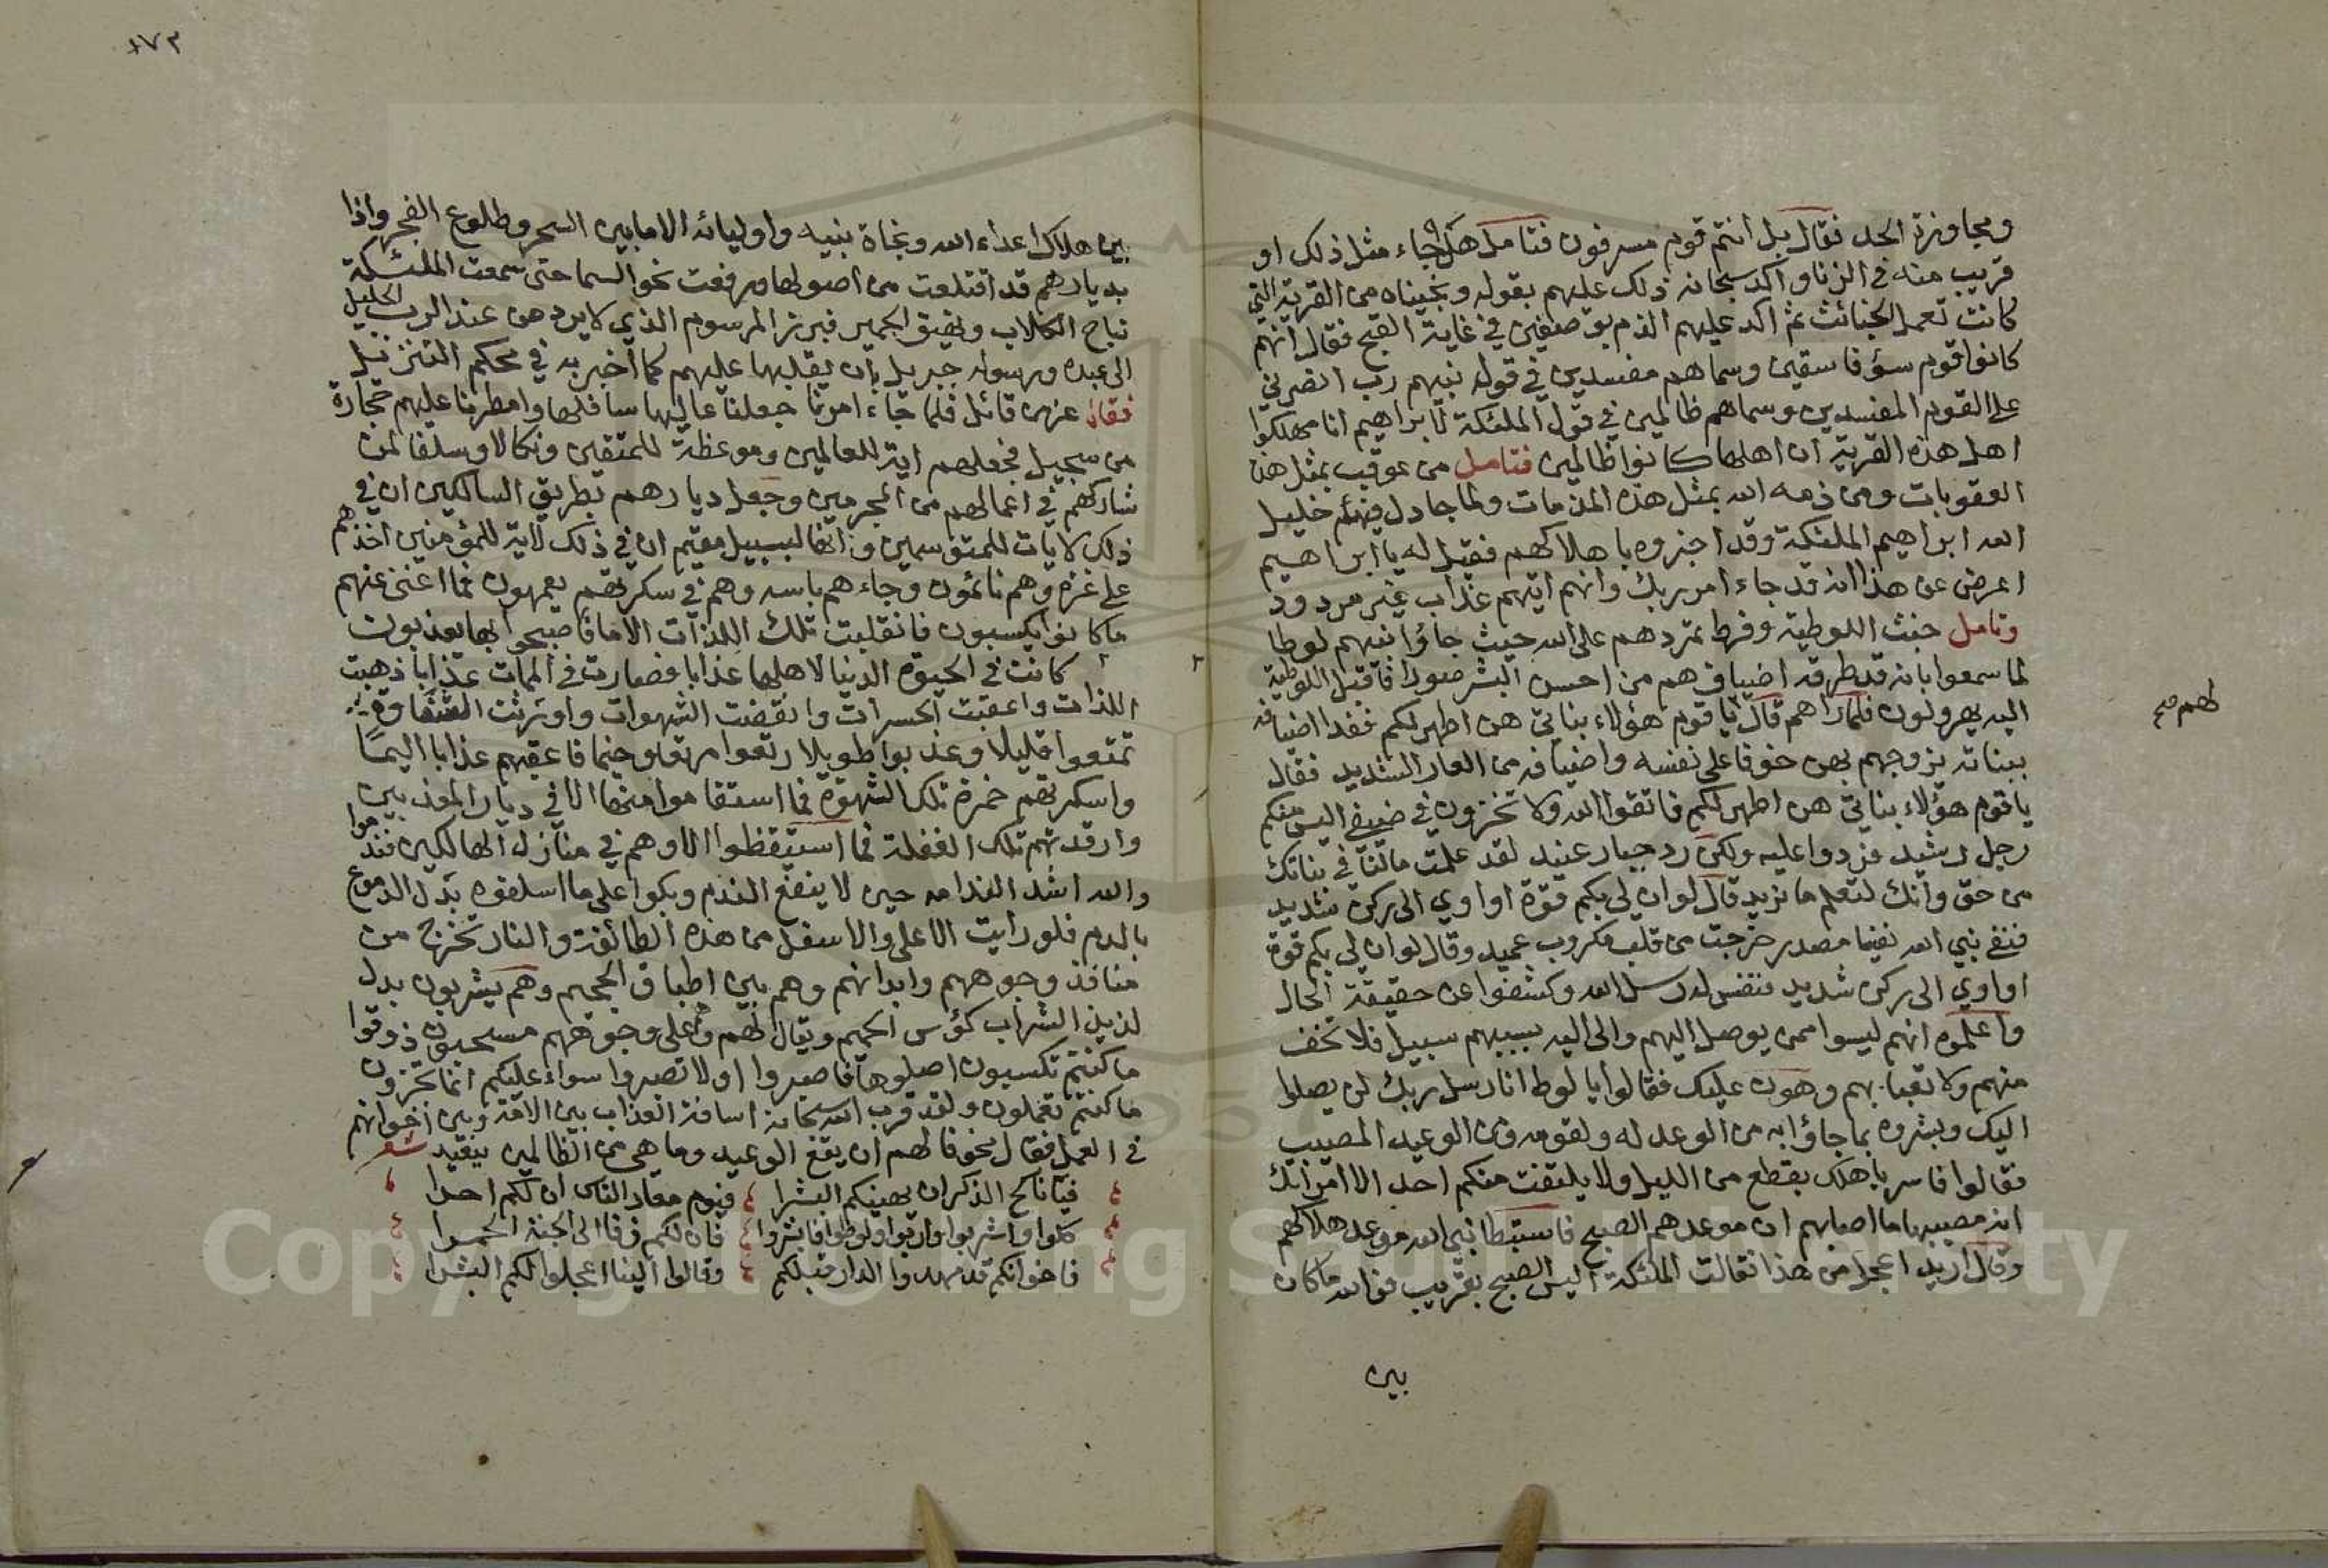 ومجاوزة الحد فقال بل انتم قوم مسرفون فتامل هل جاء مثل ذلك او
قريب منه في الزنا واكد سبحانه ذلك عليهم بقوله ونجيناه من القرية التي
كانت تعمل الخبائث ثم اكد عليهم الذم بوصفين في غاية القبح فقال انهم
كانوا قوم سوء فاسقين وسماهم مفسدين في قول نبيهم رب انصرني
على القوم المفسدين وسماهم ظالمين في قول الملئكة لابراهيم انا مهلكوا
اهل هذه القرية ان اهلها كانوا ظالمين فتامل من عوقب بمثل هذه
العقوبات ومن ذمه الله بمثل هذه المذمات ولما جادل فيهم خليل
الله ابراهيم الملئكة وقد اخبروه باهلاكهم فقيل له يا ابراهيم
اعرض عن هذا انه قد جاء امر ربك وانهم اتيهم عذاب غير مردود
وتامل خبث اللوطية وفرط تمردهم على الله حيث جاؤا نبيهم لوطا
لما سمعوا بانه قد طرقه اضياف هم من احسن البشر صورا فاقبل اللوطية
اليه يهرولون فلما راهم قال لهم يا قوم هؤلاء بناتي هن اطهر لكم ففدا اضيافه
ببناته يزوجهم بهن خوفا على نفسه واضيافه من العار الشديد فقال
يا قوم هؤلاء بناتي هن اطهر لكم فاتقوا الله ولا تخزون في ضيفي اليس منكم
رجل رشيد فردوا عليه ولكن رد جبار عنيد لقد علمت مالنا في بناتك
من حق وانك لتعلم ما نريد قال لو ان لي بكم قوة او اوي الى ركن شديد
فنفث نبي الله نفثة مصدر خرجت من قلب مكروب عميد وقال لو ان لي بكم قوة
او اوي الى ركن شديد فنفس له رسل الله وكشفوا عن حقيقة الحال
واعلموه انهم ليسوا ممن يوصل اليهم والى اليه بسببهم سبيل فلا تخف
منهم ولا تعبا بهم وهون عليك فقالوا يا لوط انا رسل ربك لن يصلوا
اليك وبشروه بما جاؤا به من الوعد له ولقومه من الوعيد المصيب
فقالوا فاسر باهلك بقطع من الليل ولا يلتفت منكم احد الا امراتك
انه مصيبها ما اصابهم ان موعدهم الصبح فاستبطا نبي الله موعد هلاكهم
وقال اريد اعجل من هذا فقالت الملئكة اليس الصبح بقريب فوالله ما كان
بين
لهم صح
١٧٣
بين هلاك اعداء الله ونجاة نبيه واوليائه الا ما بين السحر وطلوع الفجر واذا
بديارهم قد اقتلعت من اصولها ورفعت نحو السما حتى سمعت الملئكة
نباح الكلاب ونهيق الحمير فبرز المرسوم الذي لا يرد من عند الرب الجليل
الى عبده ورسوله جبريل بان يقلبها عليهم كما اخبر به في محكم التنزيل
فقال عز من قائل فلما جاء امرنا جعلنا عاليها سافلها وامطرنا عليهم حجارة
من سجيل فجعلهم اية للعالمين وموعظة للمتقين ونكالا وسلفا لمن
شاركهم في اعمالهم من المجرمين وجعل ديارهم بطريق السالكين ان في
ذلك لايات للمتوسمين وانها لبسبيل مقيم ان في ذلك لاية للمؤمنين اخذهم
على غرة وهم نائمون وجاءهم باسه وهم في سكرتهم يعمهون فما اغنى عنهم
ما كانوا يكسبون فانقلبت تلك اللذات الاما فاصبحوا بها يعذبون
كانت في الحيوة الدنيا لاهلها عذابا فصارت في الممات عذابا ذهبت
اللذات واعقبت الحسرات وانقضت الشهوات واورثت الشقاوة
تمتعوا قليلا وعذبوا طويلا رتعوا مرتعا وخيما فاعقبهم عذابا اليما
واسكرتهم خمرة تلك الشهوة فما استفاقوا منها الا في ديار المعذبين
وارقدتهم تلك الغفلة فما استيقظوا الا وهم في منازل الهالكين فندموا
والله اشد الندامة حين لا ينفع الندم وبكوا على ما اسلفوه بدل الدموع
بالدم فلو رايت الاعلى والاسفل من هذه الطائفة والنار تخرج من
منافذ وجوههم وابدانهم وهم بين اطباق الجحيم وهم يشربون بدل
لذيذ الشراب كؤس الحميم ويقال لهم وهم على وجوههم مسحبون ذوقوا
ما كنتم تكسبون اصلوها فاصبروا او لا تصبروا سواء عليكم انما تجزون
ما كنتم تعملون ولقد قرب الله سبحانه مسافة العذاب بين الامة وبين اخوانهم
في العمل فقال مخوفا لهم ان يقع الوعيد وما هي من الظالمين ببعيد شعر
فيا ناكح الذكران يهنيكم البشرا فيوم معاد الناس ان لكم اجرا
كلوا واشربوا وازنوا ولوطوا وابشروا فان لكم زفا الى الجنة الحمرا
فاخوانكم قد مهدوا الدار قبلكم وقالوا الينا اعجلوا لكم البشرا
Copyright © King Saud University